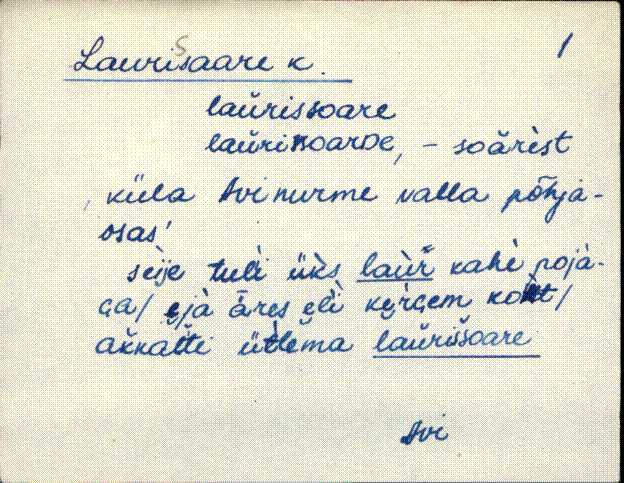 Laurissaare k. 1
laŭrissoare
laŭrissoarDe, - soărèst
küla Avinurme valla põhja-
osas!
seije tuli üks laŭr kahè pojà-
ga/ ejà äres eli kergem koht/
akkatti ütlema laŭrissoare
Avi